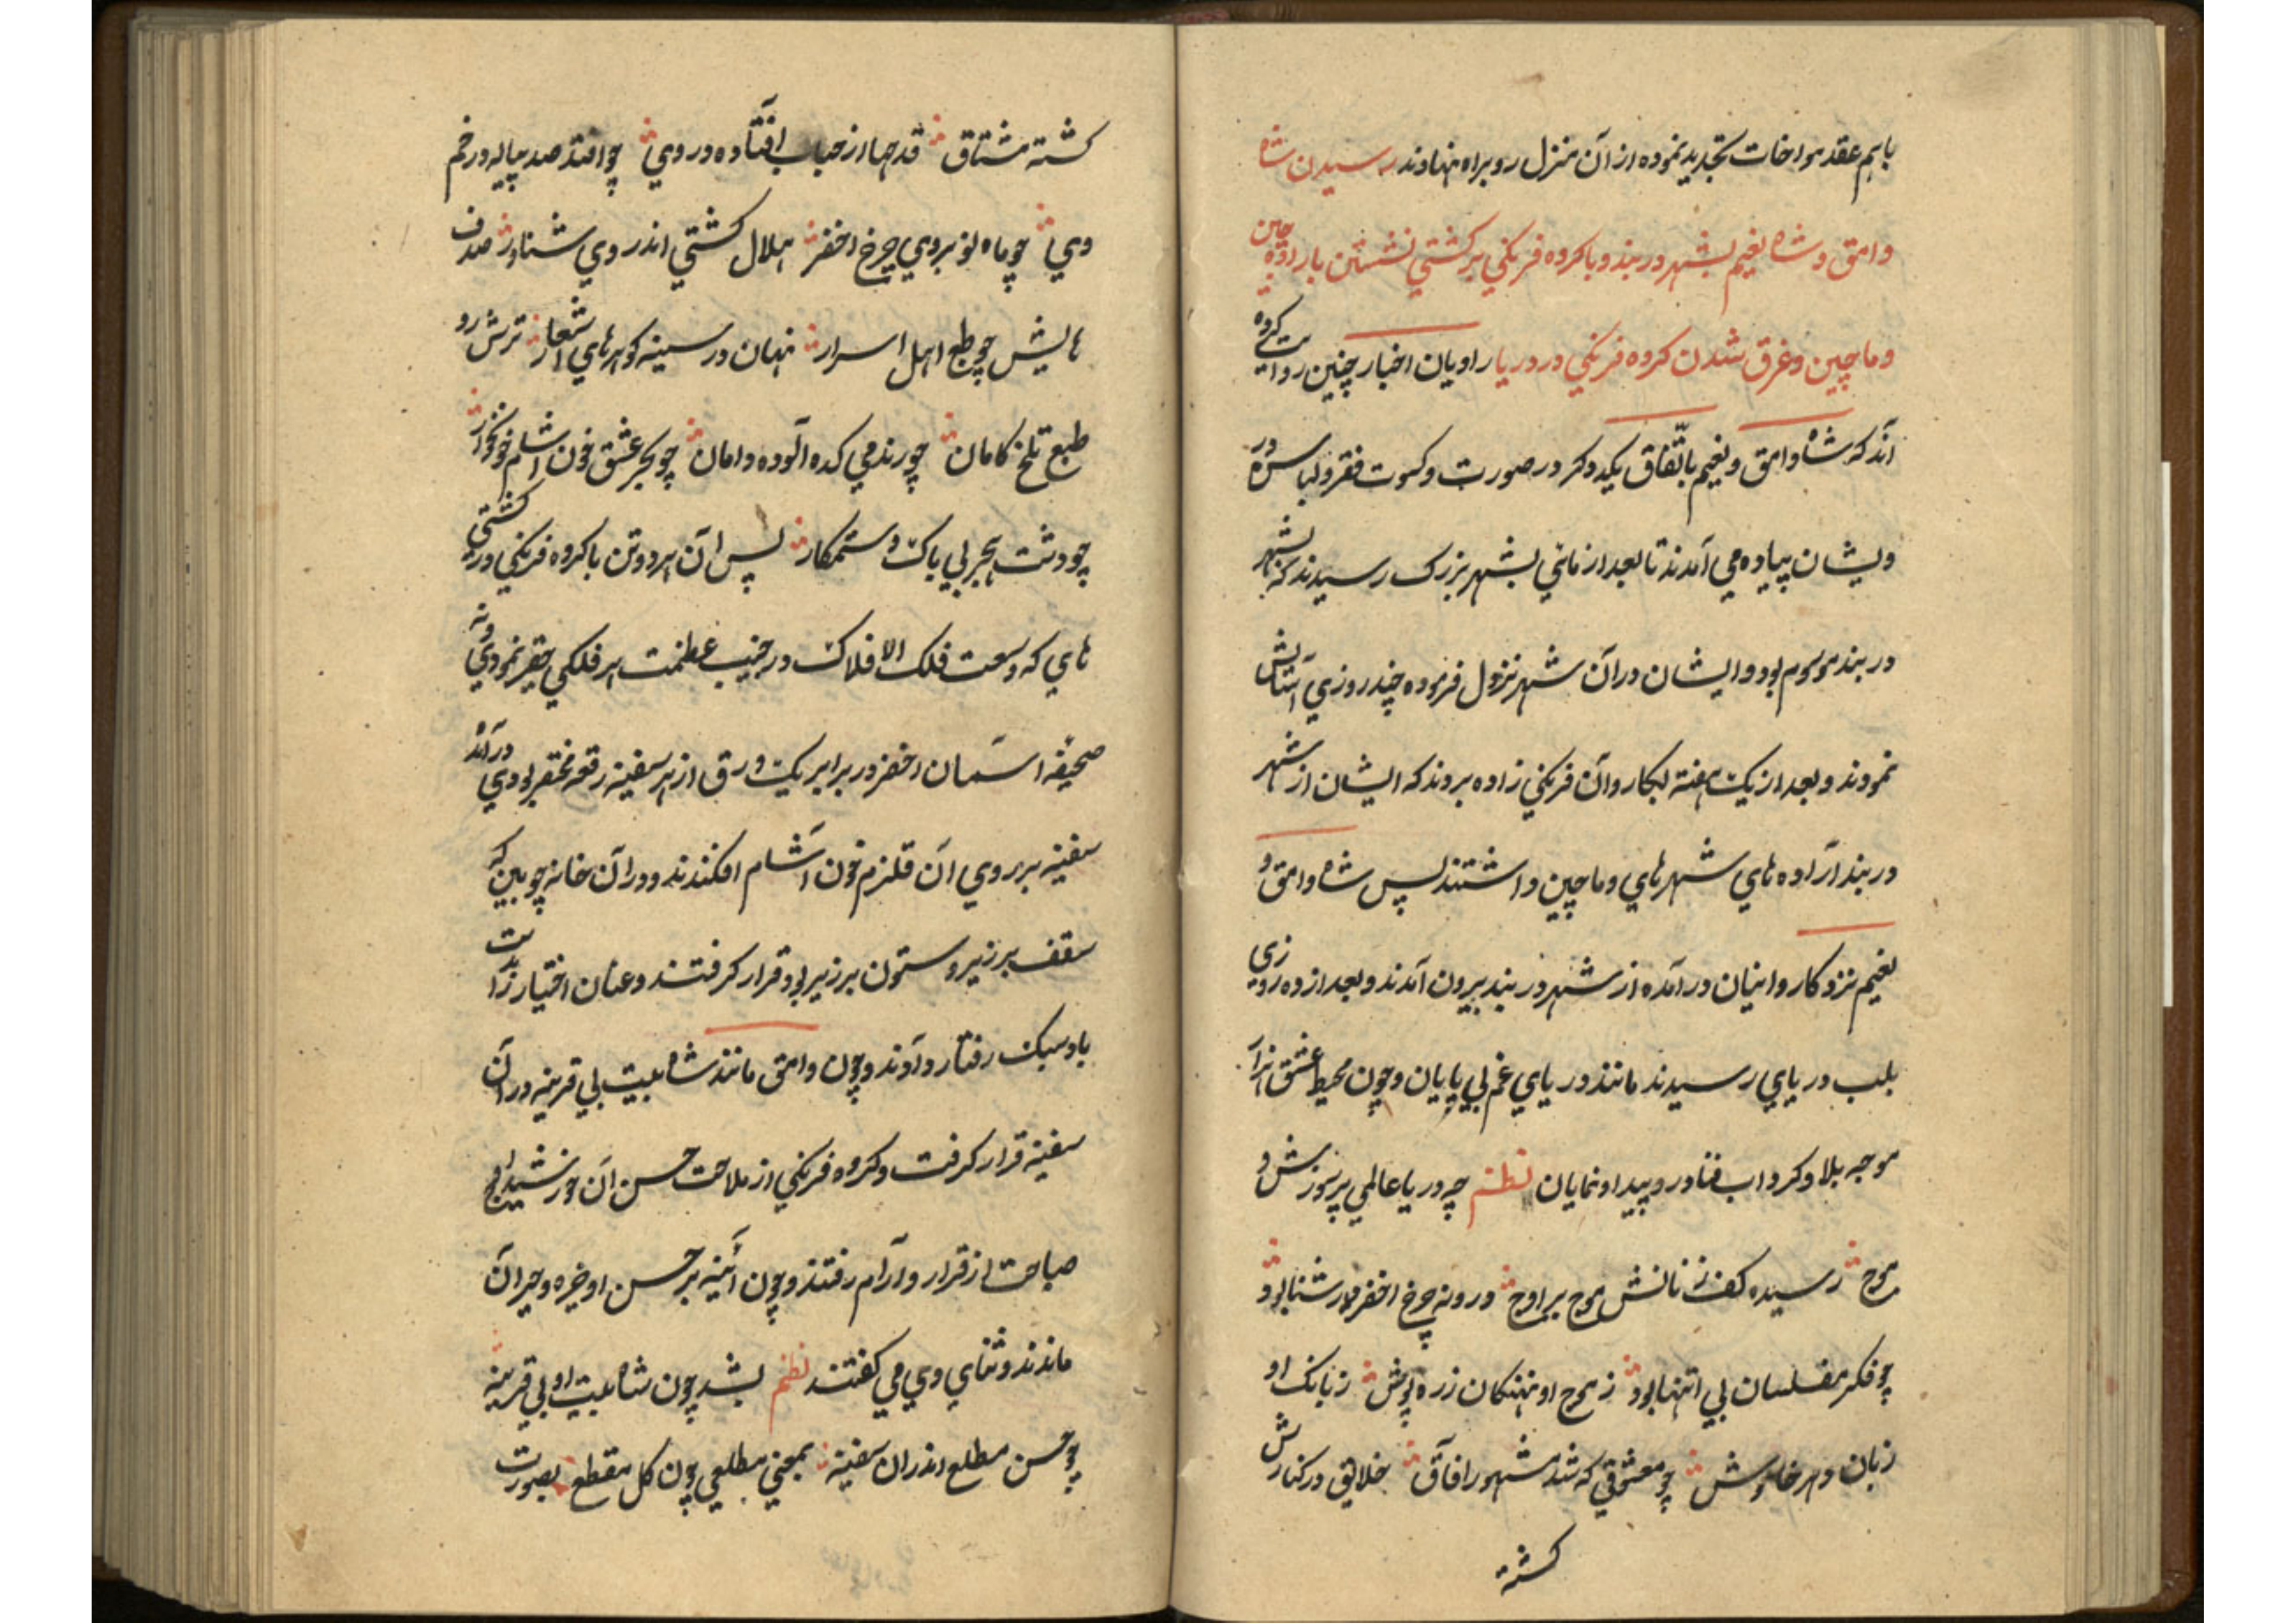 باهم عقد مواخات تجدید نموده از آن منزل رو براه نهادند رسیدن شاه
وامق و شاه نعیم بشهر دربند و با کروه فرنکي بر کشتي نشستن باراده چین
و ماچین و غرق شدن کروه فرنکي در دریا راویان اخبار چنین روایت کرده
آند که شاه وامق و نعیم باتّفاق یکدکر در صورت و کسوت فقر و لباس در
ویشان پیاده مي آمدند تا بعد از مانی بشهر بزرک رسیدند که بشهر
دربند موسوم بود و ایشان در آن شهر نزول فرموده چند روزي آسایش
نمودند و بعد از یک هفته بکاروان فرنکي زاده بروند که ایشان از شهر
دربند اراده هاي شهرهاي و ماچین داشتند پس شاه وامق و
نعیم نزد کاروانیان در آمده از شهر دربند بیرون آمدند و بعد از ده روزي
بلب دریاي رسیدند مانند دریاي غم بي پایان و چون محیط عشق از آن
موجه بلا و کرداب فنا در وپیدا و نمایان نظم چه دریا عالمي پر شورش و
موج رسیده کف زنانش موج بر اوج درونه چرخ اخضر شنا بود و
چو فکر مفلسان بي انتها بود ز موج او نهنکان زره پوش ز بانک او
زبان دهر خاموش چو معشوقي که شد مشهور آفاق خلایق در کنارش
کشته
کشته مشتاق قدحها از حباب افتاده در وي چو افتد صد پیاله در خم
وي چو ماه نو بروي چرخ اخضر هلال کشتي اندر وي شناور صدف
هایش چو طبع اهل اسرار نهان در سینه کوهرهاي اشعار ترش رو
طبع تلخ کامان چو رند مي کده آلوده دامان چو بحر عشق خون آشام خونخوار
چو دشت هجر بي باک و ستمکار پس آن هر دو تن با کروه فرنکي در کشتي
هاي که وسعت فلک الافلاک در جنب عظمت هر فلکي حقیر نمودي و نه
صحیفه اسمان اخضر در برابر یک ورق از هر سفینه رقعه مختصر بودي در آمد
سفینه بر روي ان قلزم خون آشام افکندند و در آن خانه چوبین که
سقف بر زیر و ستون بر زیر بود قرار کرفتند و عنان اختیار را بدست
باد سبک رفتار دادند و چون وامق مانند شاه بیت بي قرینه در آن
سفینه قرار کرفت و کروه فرنکي از ملاحت حسن ان خورشید اوج
صباحت از قرار و آرام رفتند و چون آئینه بر حسن او خیره و حیران
ماندند و ثناي وي مي کفتند نظم بشد چون شاه بیت او بي قرینه
چو حسن مطلع اندران سفینه بمعني مطلعي چون کل مقطع بصورت